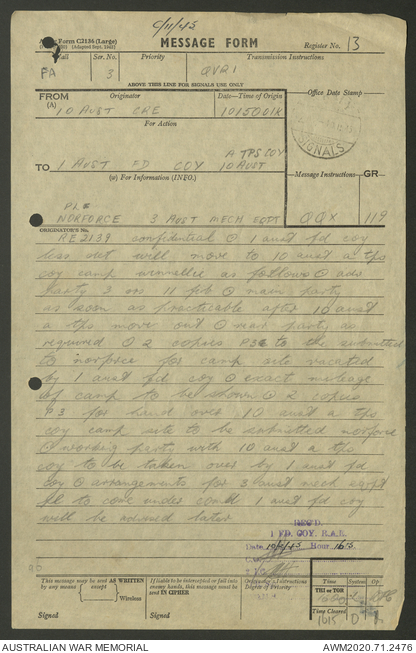 C/11/45
Form C2136 (Large)
(Adapted Sept. 1942)
MESSAGE FORM
Register No. 13
Call
Ser. No.
Priority
Transmission Instructions
PA
3
QVR1
ABOVE THIS LINE FOR SIGNALS USE ONLY
FROM
(A)
Originator
Date—Time of Origin
Office Date Stamp
10 AUST CRE
101500K
For Action
SIGNALS
A TPS COY
TO 1 AUST FD COY 10 AUST
(W) For Information (INFO.)
Message Instructions
GR
NORFORCE 3 AUST MECH EQPT
QQX
119
ORIGINATOR'S No.
AE2139 confidential ⊙ 1 aust fd coy
less det will move to 10 aust a tps
coy camp winnellie as follows ⊙ adv
party 3 ors 11 feb ⊙ main party
as soon as practicable after 10 aust
a tps move out ⊙ rear party as
required ⊙ 2 copies P3 to be submitted
to norforce for camp site vacated
by 1 aust fd coy ⊙ exact mileage
of camp to be shown ⊙ 2 copies
P3 for hand over 10 aust a tps
coy camp site to be submitted norforce
⊙ working party with 10 aust a tps
coy to be taken over by 1 aust fd
coy ⊙ arrangements for 3 aust mech eqpt
pl to come under comd 1 aust fd coy
will be advised later
REC'D
1 FD. COY. R.A.E.
Date 10/2/45 Hour 1615
This message may be sent AS WRITTEN
by any means except
Wireless
If liable to be intercepted or fall into
enemy hands, this message must be
sent IN CIPHER
Originator's Instructions
Degree of Priority
Time
System
Op
THI or TOR
Time Cleared
1615
D
Signed
Signed
AUSTRALIAN WAR MEMORIAL
AWM2020.71.2476